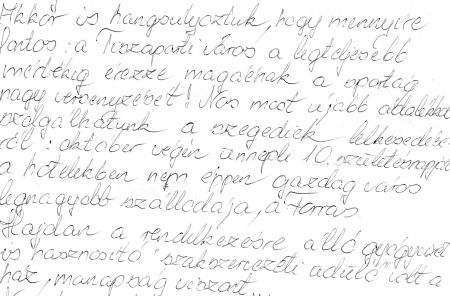 Akkor is hangsúlyoztuk, hogy mennyire
fontos: a Tiszaparti város a legteljesebb
mértékig érezze magáénak a sportág
nagy versenyzőbet! Nos most újabb adalékkal
szolgálhatunk a szegediek lelkesedésé-
ről: október végén ünnepli 10. születésnapját
a hotelekben nem éppen gazdag város
legnagyobb szállodája, a Forrás.
Hajdan a rendelkezésre álló gyógyvizet
is hasznosító "szakszervezeti üdülő" volt a
ház, manapság viszont